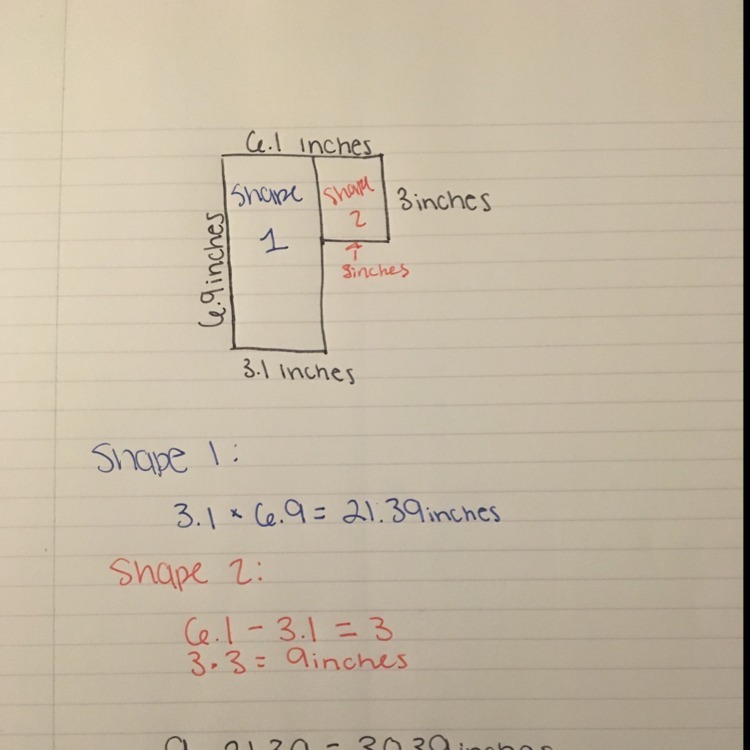 6.1 inches
Shape
1
Shape
2
3inches
3inches
6.9inches
3.1 inches
Shape 1:
3.1 * 6.9 = 21.39inches
Shape 2:
6.1 - 3.1 = 3
3.3 = 9inches